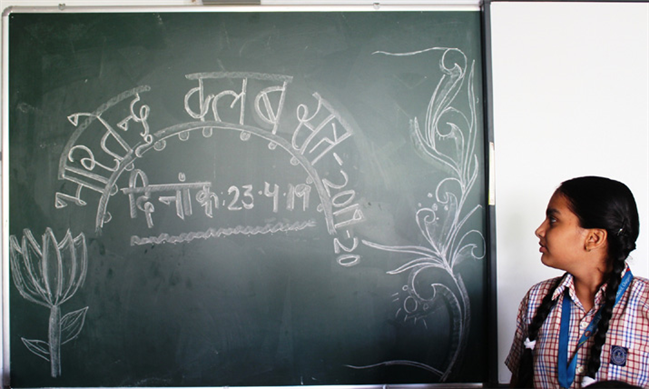 भारतेन्दु क्लब सत्र-2019-20
दिनांक. 23.4.19